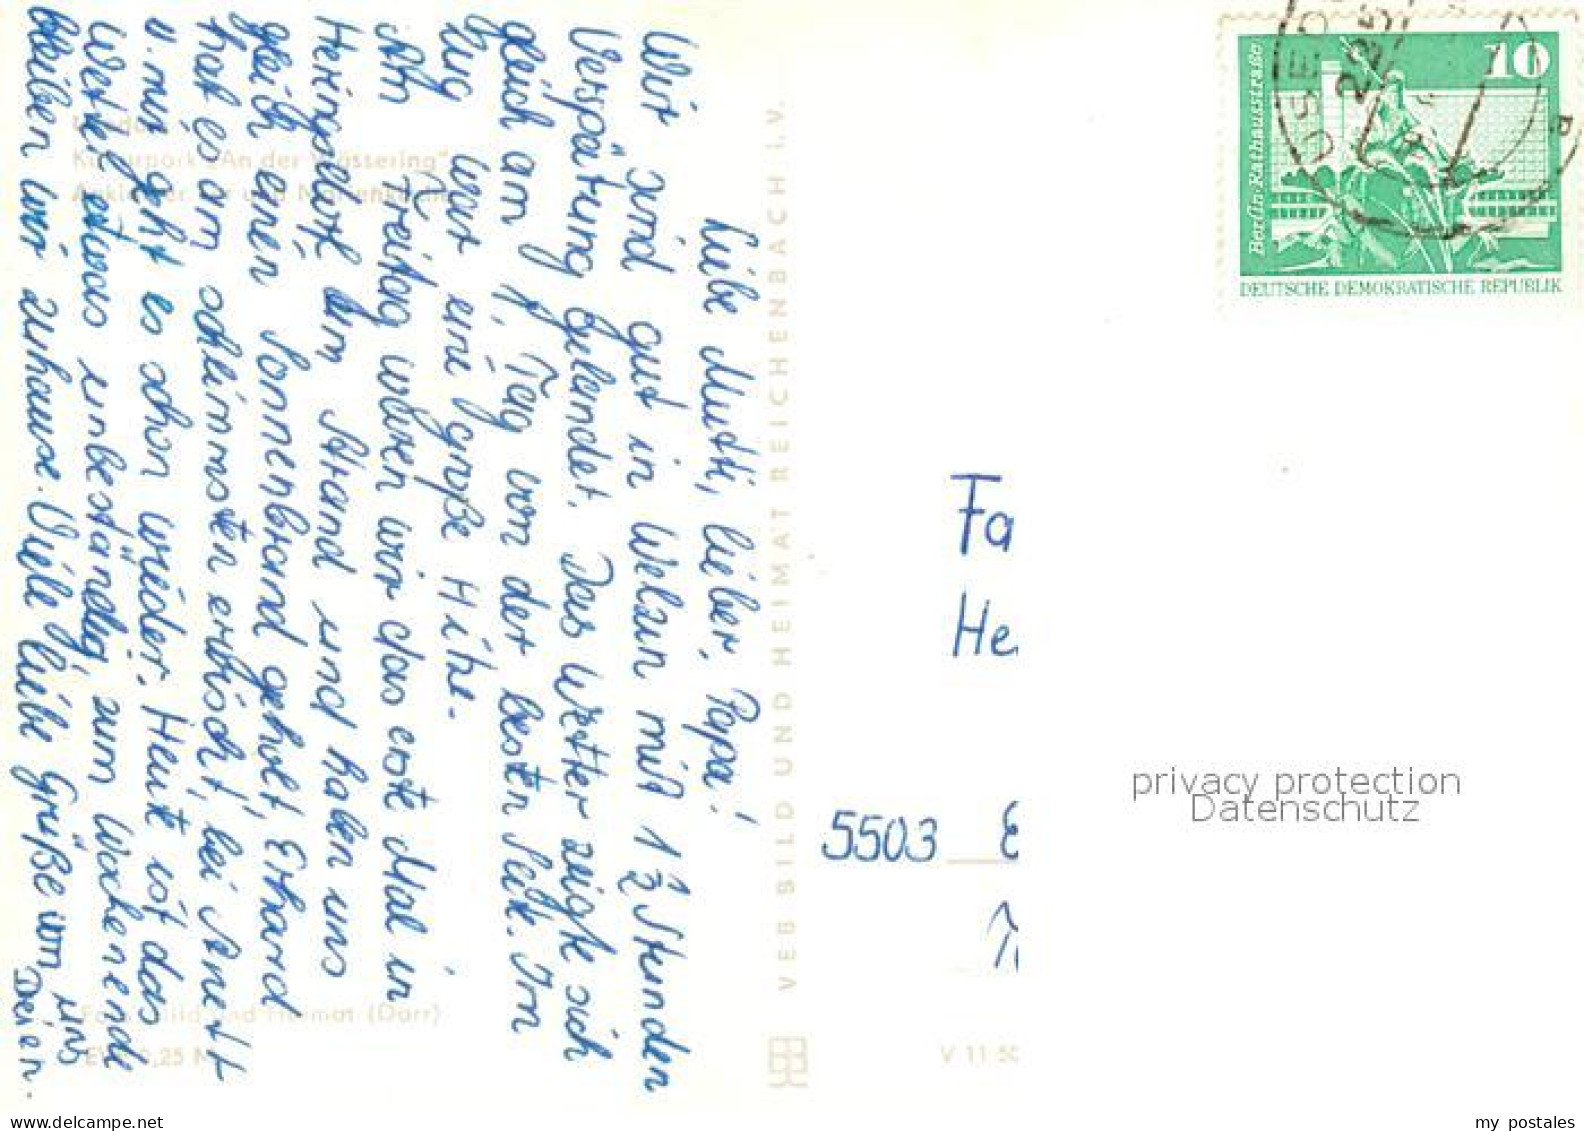 Liebe Mutti, lieber Papa!
Wir sind gut in Welzin mit 1½ Stunden
Verspätung gelandet. Das Wetter zeigte sich
gleich am 1. Tag von der besten Seite. Im
Zug war eine große Hitze.
Am Freitag waren wir das erste Mal in
Heringsdorf am Strand und haben uns
gleich einen Sonnenbrand geholt, Erhard
hat es am schlimmsten erwischt, bei Anett
u. mir geht es schon wieder. Heute ist das
Wetter etwas unbeständig, zum Wochenende
bleiben wir zuhause. Viele liebe Grüße von uns
Dreien.
Usedom
Kulturpark "An der Wässering"
Anklamer Tor und Marienkirche
Foto: Bild und Heimat (Darr)
EVP 0,25 M
VEB BILD UND HEIMAT REICHENBACH I. V.
V 11 50
10
Berlin-Rathausstraße
DEUTSCHE DEMOKRATISCHE REPUBLIK
USEDO
225
a
Fa
He
5503 E
privacy protection
Datenschutz
www.delcampe.net
my_postales